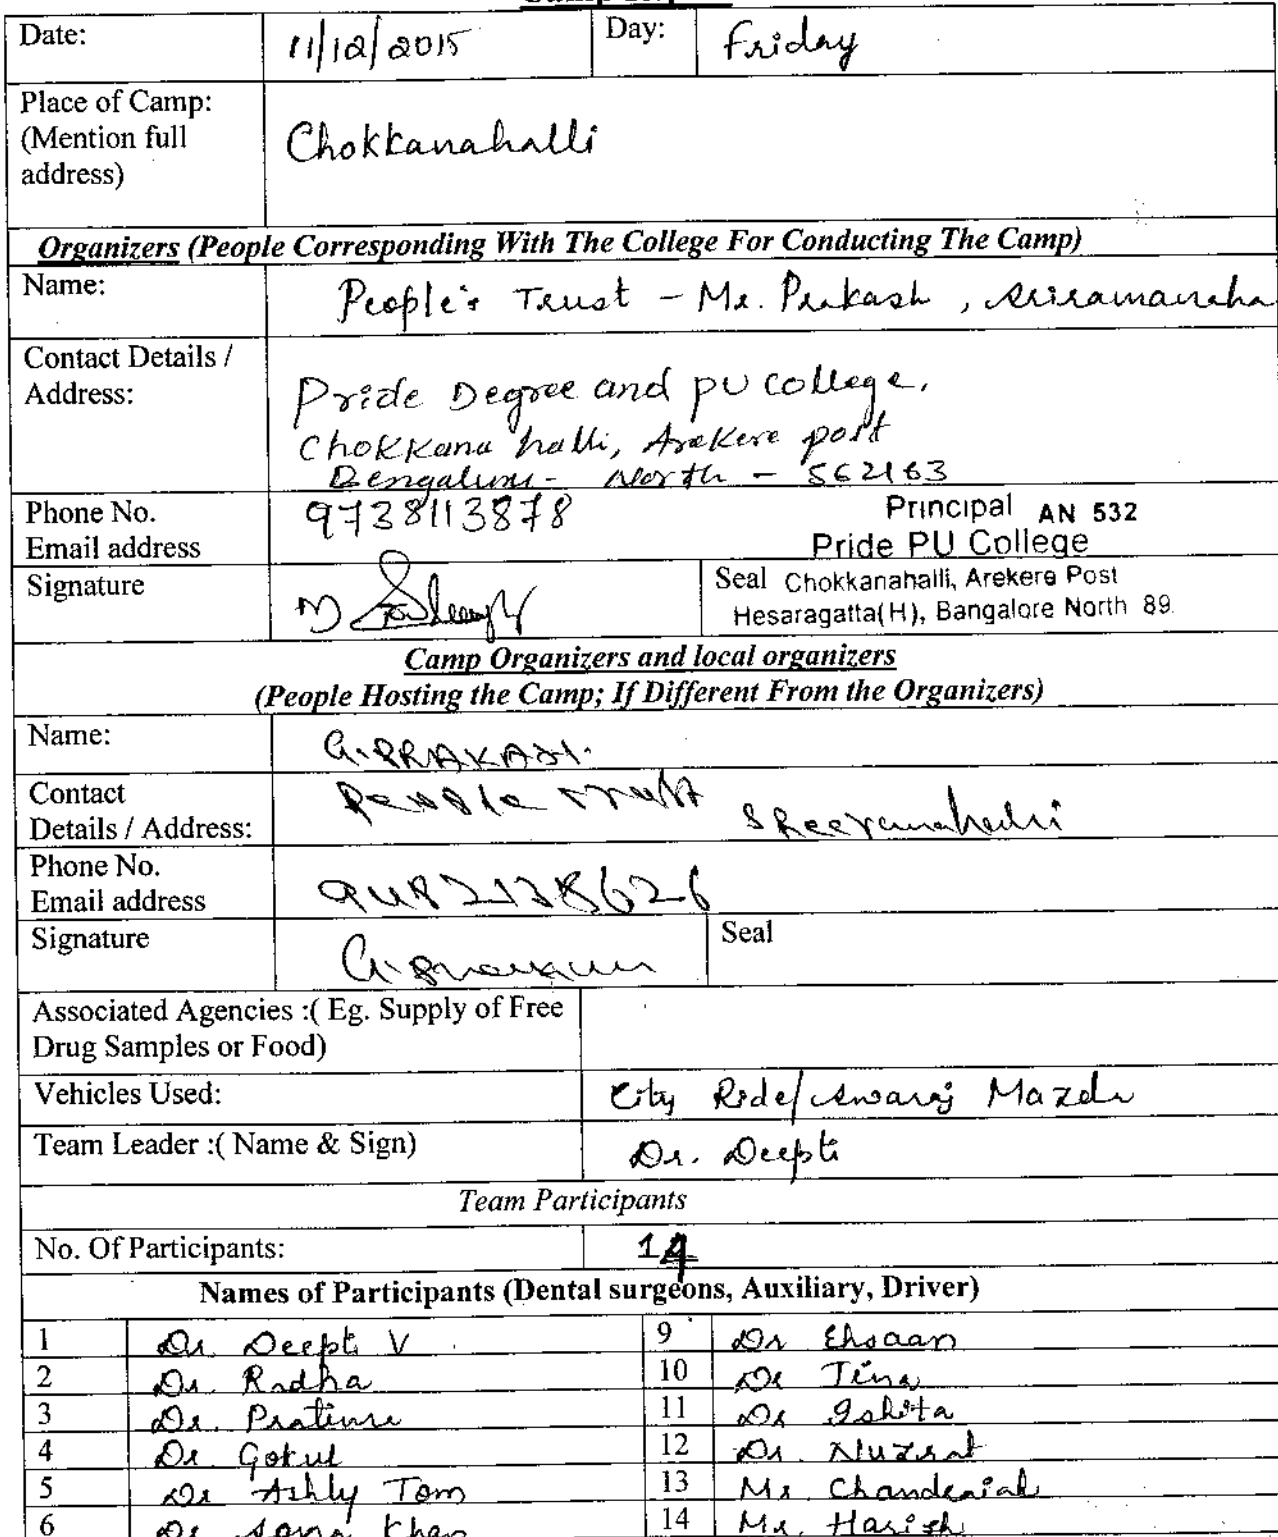 Date: 11/12/2015 Day: Friday
Place of Camp: (Mention full address) Chokkanahalli
Organizers (People Corresponding With The College For Conducting The Camp)
Name: People's Trust - Mr. Prakash,
Contact Details / Address: Pride Degree and PU College,
Chokkana halli, Arekere post
Bengaluru - North - 562163
Phone No. 9738113878 Principal AN 532
Email address Pride PU College
Signature Seal Chokkanahalli, Arekere Post
Hesaragatta(H), Bangalore North 89.
Camp Organizers and local organizers
(People Hosting the Camp; If Different From the Organizers)
Name: G. PRAKASH.
Contact Details / Address: People trust
Phone No.
Email address
Signature Seal
Associated Agencies :( Eg. Supply of Free
Drug Samples or Food)
Vehicles Used: City Ride/ Swaraj Mazda
Team Leader :( Name & Sign) Dr. Deepti
Team Participants
No. Of Participants: 14
Names of Participants (Dental surgeons, Auxiliary, Driver)
1 Dr Deepti V 9 Dr Ehsaan
2 Dr. Radha 10 Dr Tina
3 Dr. 11 Dr Ishita
4 Dr. Gokul 12 Dr. Nuzrat
5 Dr Ashly Tom 13 Mr. Chandraiah
6 Dr Sana Khan 14 Mr. Harish